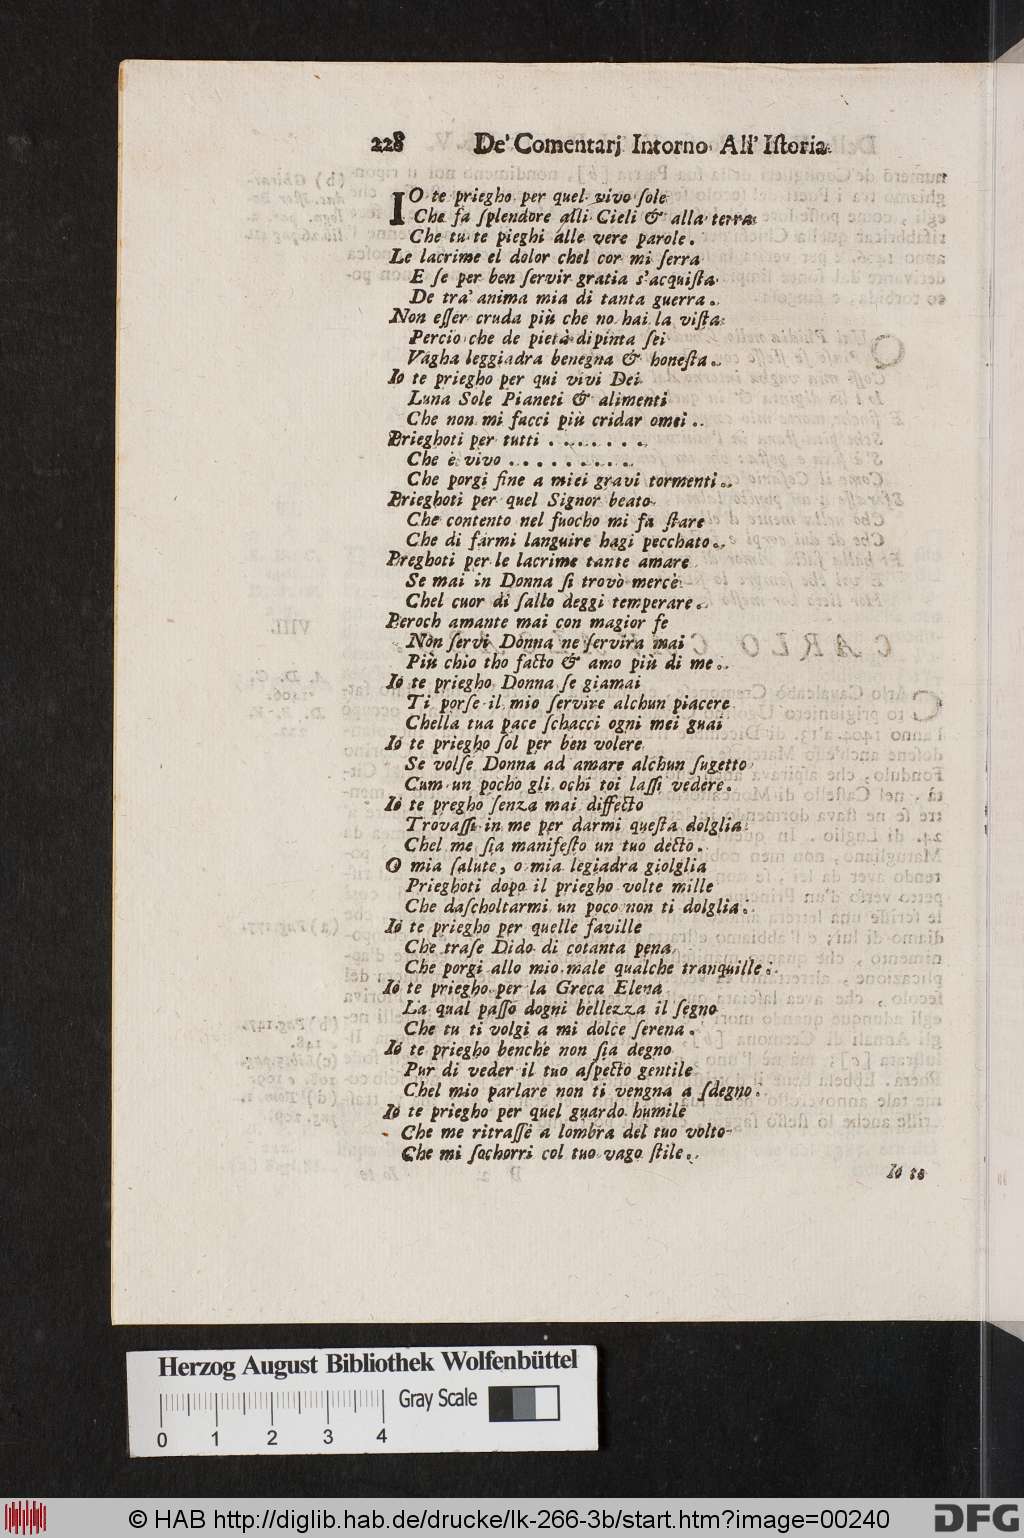 228 De' Comentarj Intorno All' Iſtoria
IO te priegho per quel vivo ſole
Che fa ſplendore alli Cieli & alla terra
Che tu te pieghi alle vere parole.
Le lacrime el dolor chel cor mi ſerra
E ſe per ben ſervir gratia s'acquiſta
De tra' anima mia di tanta guerra.
Non eſſer cruda più che no hai la viſta
Percio che de pietà dipinta ſei
Vagha leggiadra benegna & honeſta.
Io te priegho per qui vivi Dei
Luna Sole Pianeti & alimenti
Che non mi facci più cridar omei.
Prieghoti per tutti . . . . . . . .
Che è vivo . . . . . . . . . .
Che porgi fine a miei gravi tormenti.
Prieghoti per quel Signor beato
Che contento nel fuocho mi fa ſtare
Che di farmi languire hagi pecchato.
Preghoti per le lacrime tante amare
Se mai in Donna ſi trovò mercè
Chel cuor di ſallo deggi temperare.
Peroch amante mai con magior fe
Non ſervi Donna ne ſervira mai
Più chio tho facto & amo più di me.
Io te priegho Donna ſe giamai
Ti porſe il mio ſervire alchun piacere
Chella tua pace ſchacci ogni mei guai
Io te priegho ſol per ben volere
Se volſe Donna ad amare alchun ſugetto
Cum un pocho gli ochi toi laſſi vedere.
Io te pregho ſenza mai diffecto
Trovaſſi in me per darmi queſta dolglia
Chel me ſia manifeſto un tuo decto.
O mia ſalute, o mia legiadra giolglia
Prieghoti dopo il priegho volte mille
Che daſcholtarmi un poco non ti dolglia.
Io te priegho per quelle faville
Che traſe Dido di cotanta pena
Che porgi allo mio male qualche tranquille.
Io te priegho per la Greca Elena
La qual paſſò dogni bellezza il ſegno
Che tu ti volgi a mi dolce ſerena.
Io te priegho benchè non ſia degno
Pur di veder il tuo aſpecto gentile
Chel mio parlare non ti vengna a ſdegno.
Io te priegho per quel guardo humile
Che me ritraſſe a lombra del tuo volto
Che mi ſochorri col tuo vago ſtile.
Io te
Herzog August Bibliothek Wolfenbüttel
Gray Scale
0 1 2 3 4
© HAB http://diglib.hab.de/drucke/lk-266-3b/start.htm?image=00240 DFG